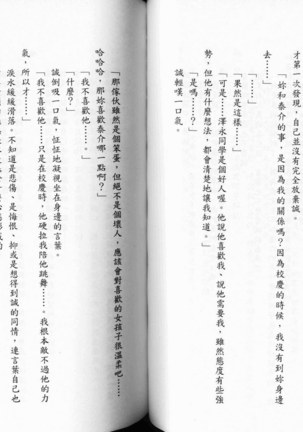 才第一次發現，自己並沒有完全放棄誠。
「妳和泰介的事，是因為我的關係嗎？因為校慶的時候，我沒有到妳身邊
去……」
「……」
「果然是這樣……」
「可是……澤永同學是個好人喔。他說他喜歡我、說他需要我，雖然態度有些強
勢，但他有什麼想法，都會清楚地讓我知道。」
「是嗎……？」
誠輕嘆一口氣。
「那傢伙雖然是個笨蛋，但絕不是個壞人，應該會對喜歡的女孩子很溫柔吧……
哈哈哈，那妳喜歡泰介哪一點啊？」
「我不喜歡他……。」
「什麼？」
誠倒吸一口氣，怔怔地凝視坐在身邊的言葉。
「我不喜歡他……只是在校慶時，他硬拉我陪他跳舞……。我根本敵不過他的力
氣，所以才……」
淚水緩緩滑落。不知道是悲傷、是悔恨、抑或是想得到誠的同情，連言葉自己也